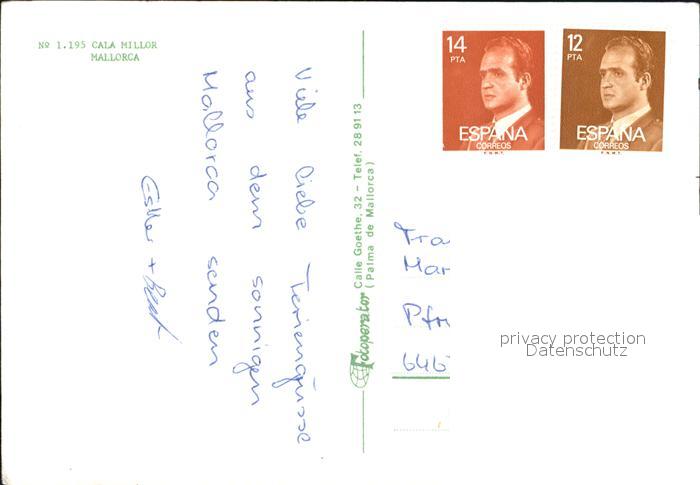 Nº 1.195 CALA MILLOR
MALLORCA
Viele liebe Feriengrüsse
aus dem sonnigen
Mallorca senden
Esther +
Fotoperator
Calle Goethe, 32 – Telef. 28 91 13
(Palma de Mallorca)
14
PTA
ESPAÑA
CORREOS
F.N.M.T.
12
PTA
ESPAÑA
CORREOS
F.N.M.T.
Fra
Mar
Pfr
646
privacy protection
Datenschutz